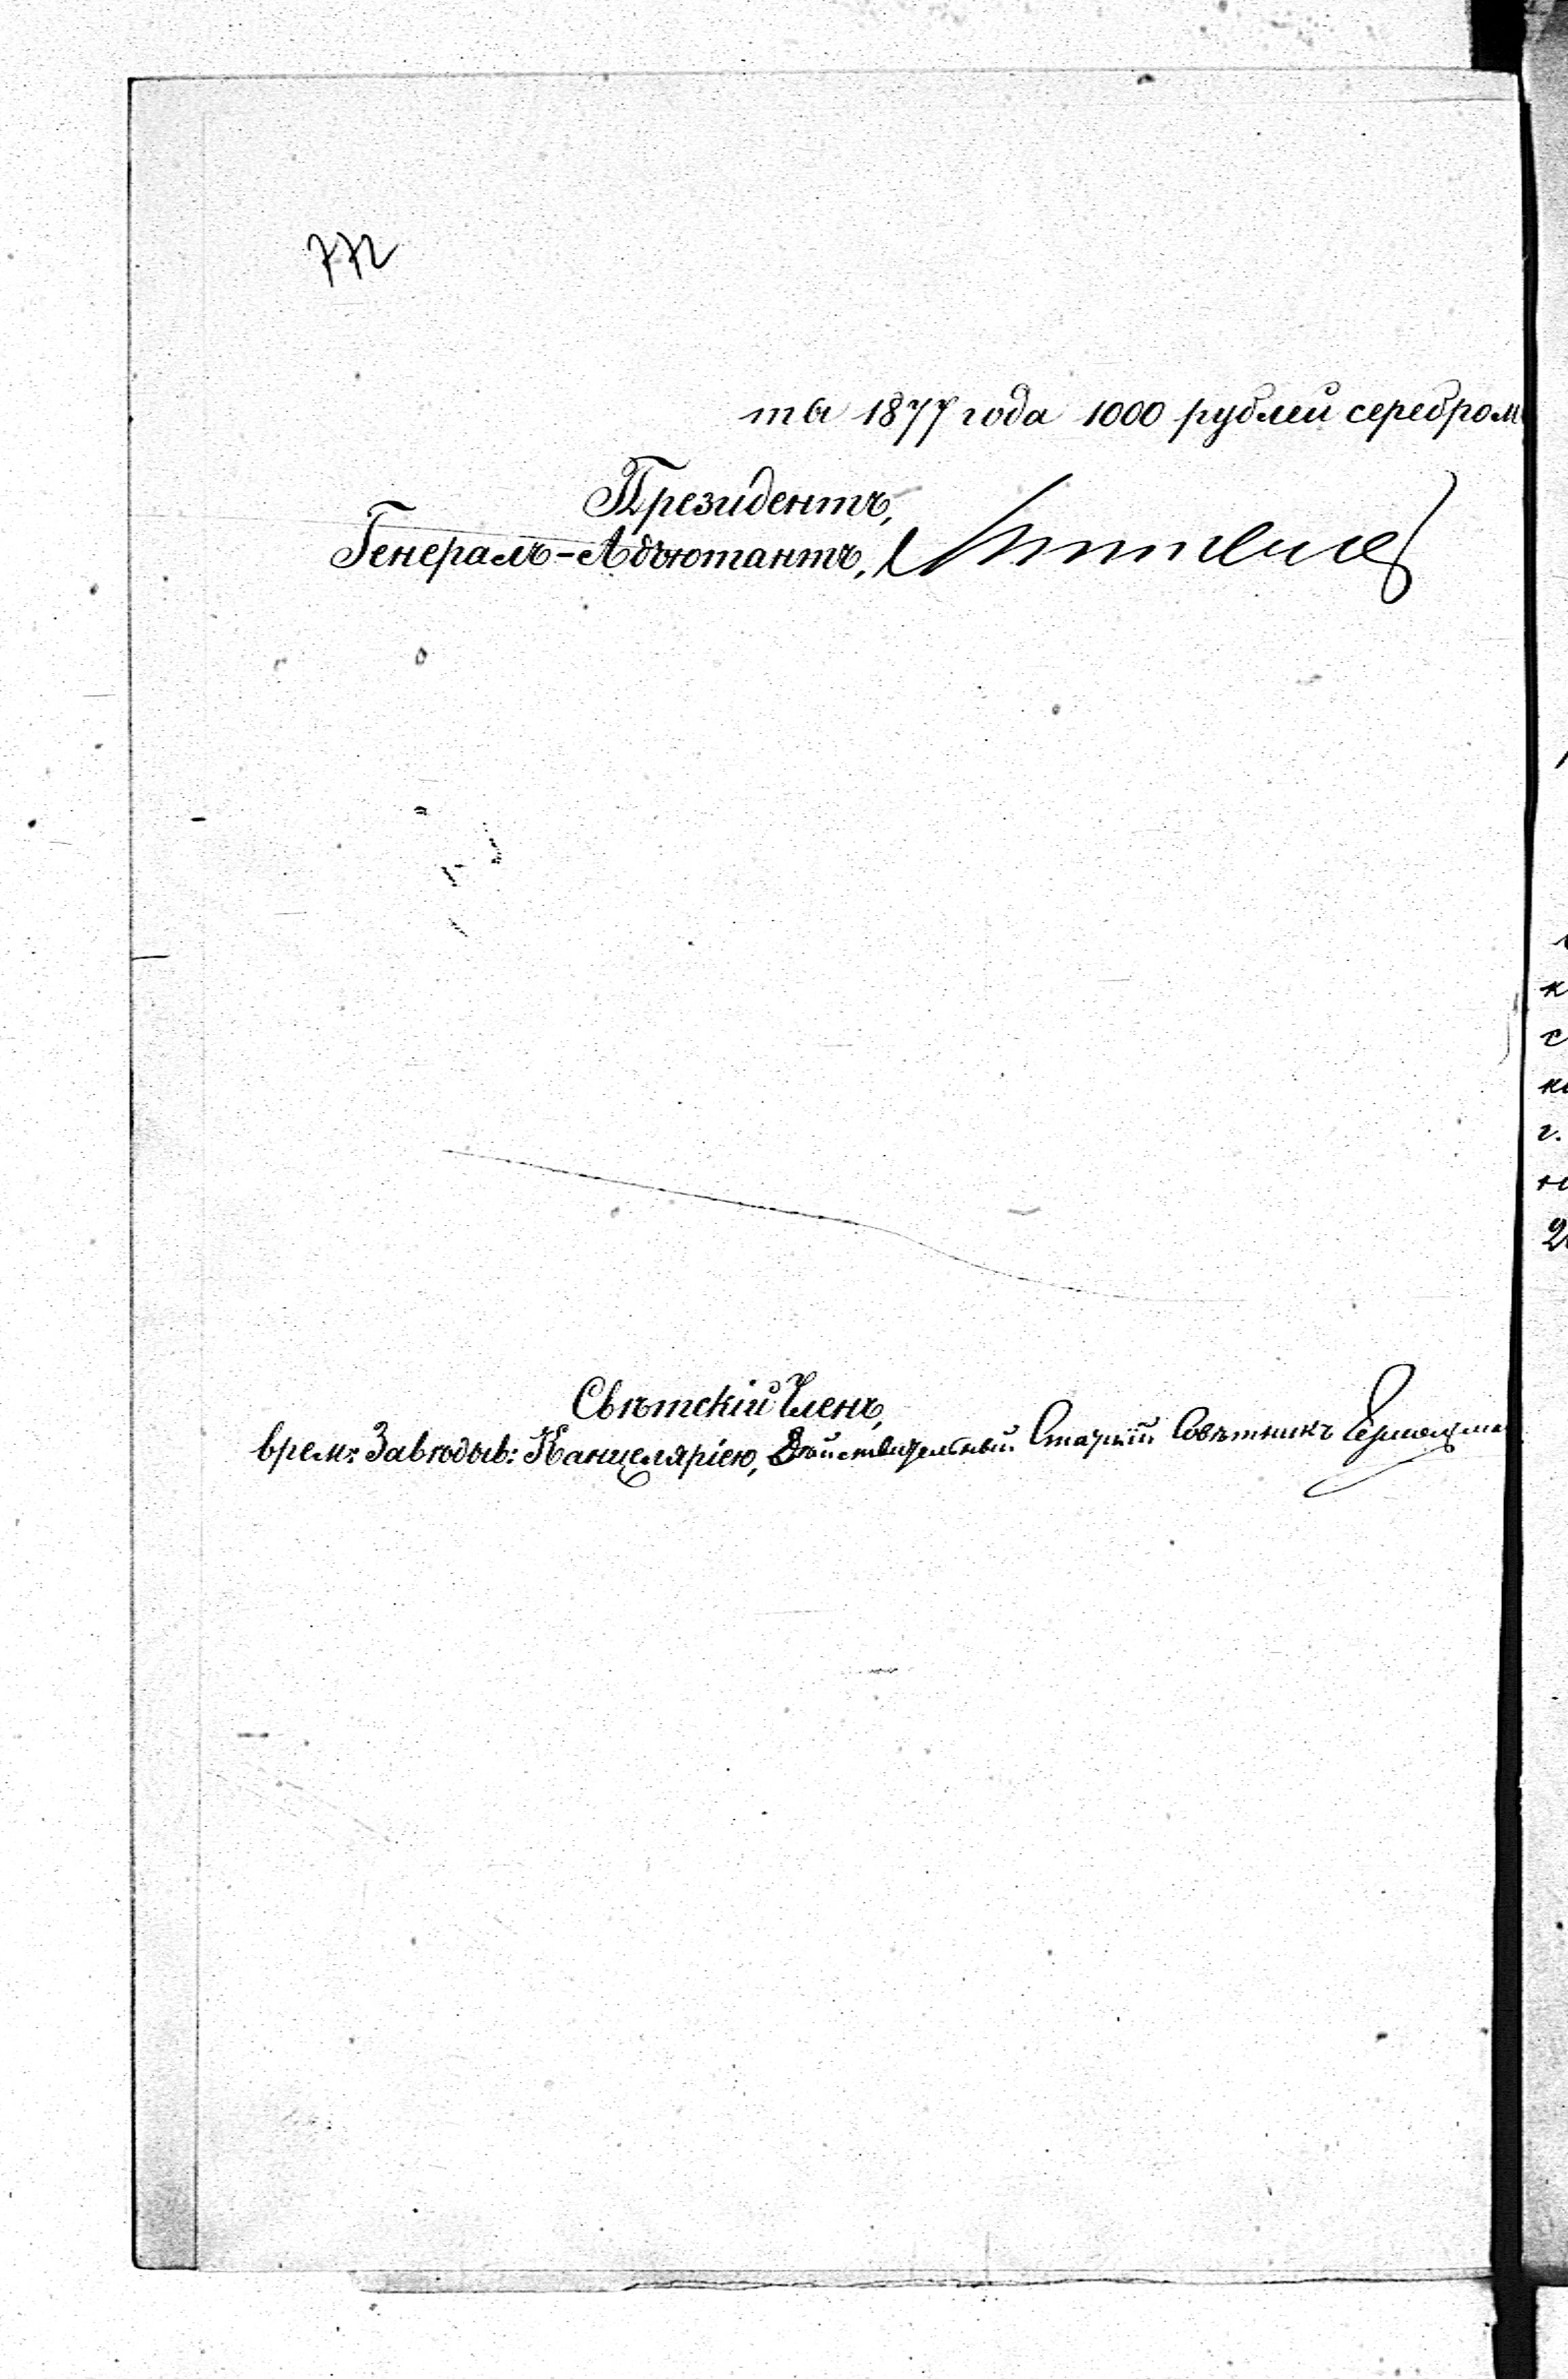 772
ты 1877 года 1000 рублей серебром
Президентъ,
Генералъ-Адъютантъ,
Свѣтскій Членъ,
врем: Завѣдыв: Канцеляріею, Дѣйствительный Статскій Совѣтникъ